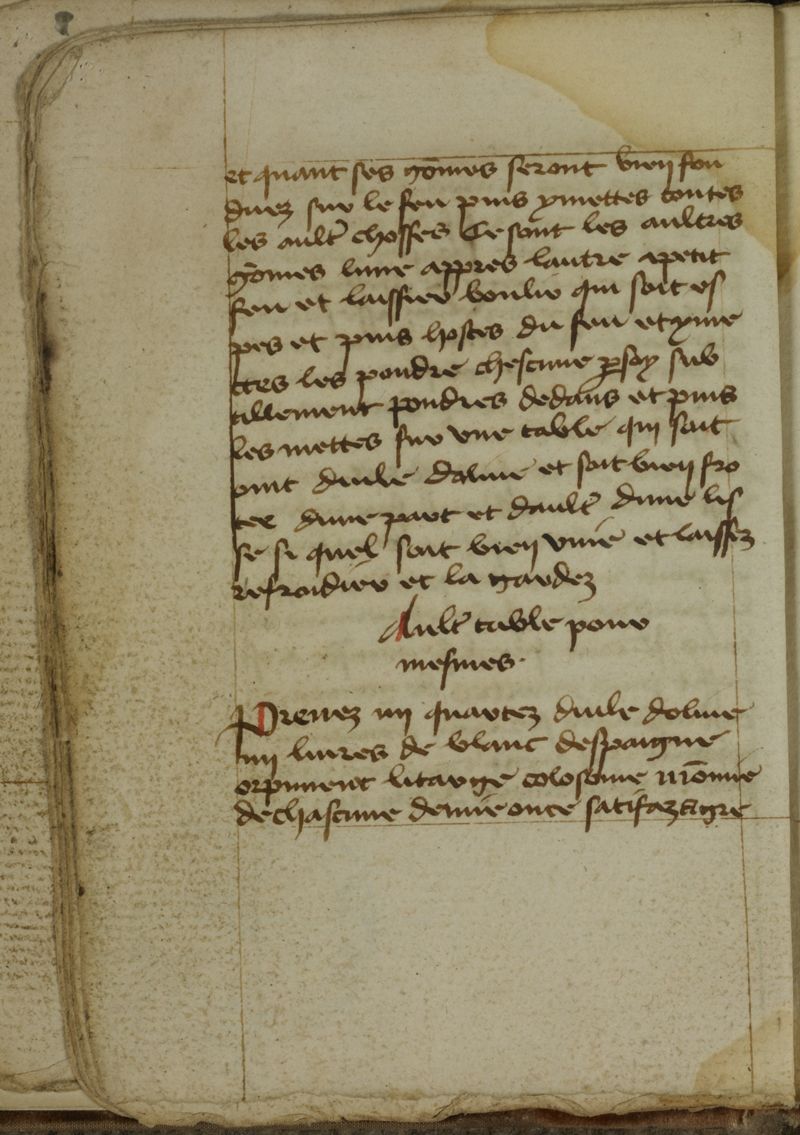 et quant ses gōmes seront bien fon
duez sur le feu puis ymettes toutes
les ault' chosses Ce sont les aultres
gōmes lune appres lautre apetit
feu et laissier boulir qui soit es
pes et puis hostes du feu et yme
ttes les poudre chescune p soy sub
tillement poudres dedans et puis
les mettes sur une table qui soit
oint duile dolive et soit bien fro
tee dune part et dault' dune lis
se si quel soit bien unie et laissez
refroidier et la gardez
Ault' table pour
mesmes
Prenez iiij quartez duile dolive
iiij livres de blanc despaigne
orpiment litarge colofone
de chascune demie once